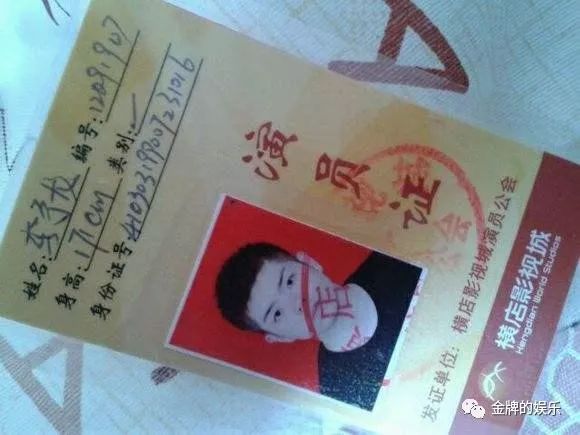 演员证
姓名: 李子龙 编号: 12091907
身高: 171cm 类别:
身份证号:
店
发证单位: 横店影视城演员公会
横店影视城
Hengdian World Studios
金牌的娱乐